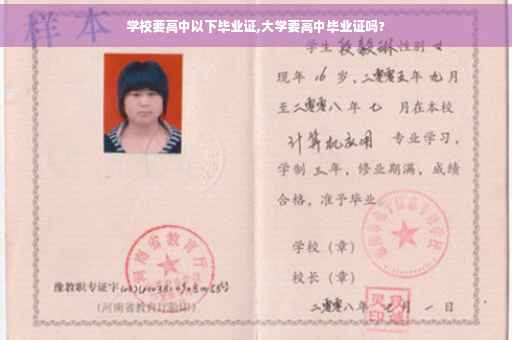 学校要高中以下毕业证,大学要高中毕业证吗?
样本
学生 段毅琳 性别 女
现年 16 岁，二零零五年 九 月
至二零零八年 七 月在本校
计算机应用 专业学习，
学制 三 年，修业期满，成绩
合格，准予毕业
学校（章）
校长（章）
二零零八年 七 月 一 日
河南省教育厅
豫教职专证字
(河南省教育厅验印)